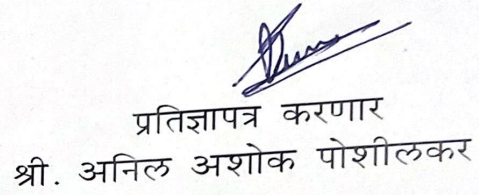 प्रतिज्ञापत्र करणार
श्री. अनिल अशोक पोशीलकर